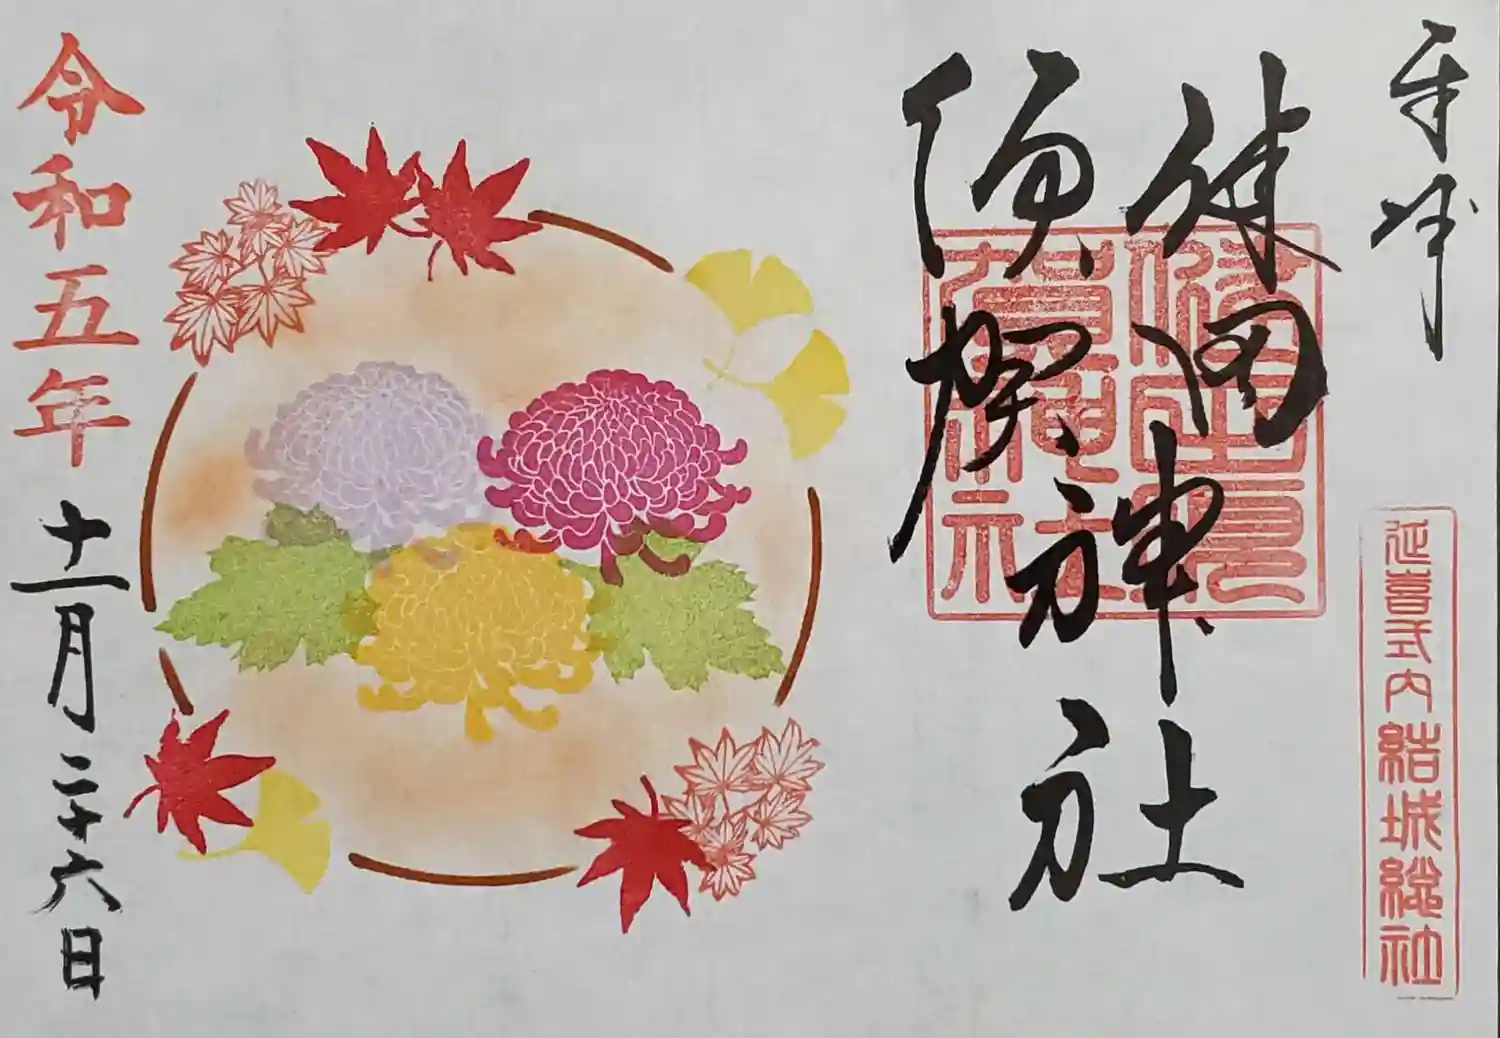 奉拝
健田神社
須賀々々
健田須
賀神社
延喜式内 結城総社
令和五年
十一月二十六日